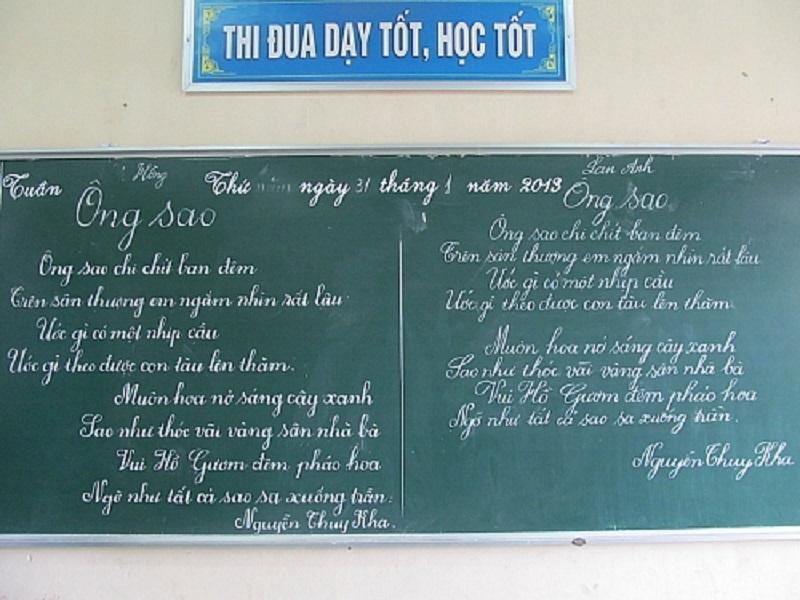 THI ĐUA DẠY TỐT, HỌC TỐT
Tuần Thứ năm ngày 31 tháng 1 năm 2013
Hồng
Ông sao
Ông sao chi chít ban đêm
Trên sân thượng em ngắm nhìn rất lâu
Ước gì có một nhịp cầu
Ước gì theo được con tàu lên thăm.
Muôn hoa nở sáng cây xanh
Sao như thóc vãi vàng sân nhà bà
Vui Hồ Gươm đêm pháo hoa
Ngỡ như tất cả sao sa xuống trần.
Nguyễn Thụy Kha.
Lan Anh
Ông sao
Ông sao chi chít ban đêm
Trên sân thượng em ngắm nhìn rất lâu
Ước gì có một nhịp cầu
Ước gì theo được con tàu lên thăm
Muôn hoa nở sáng cây xanh
Sao như thóc vãi vàng sân nhà bà
Vui Hồ Gươm đêm pháo hoa
Ngỡ như tất cả sao sa xuống trần.
Nguyễn Thụy Kha